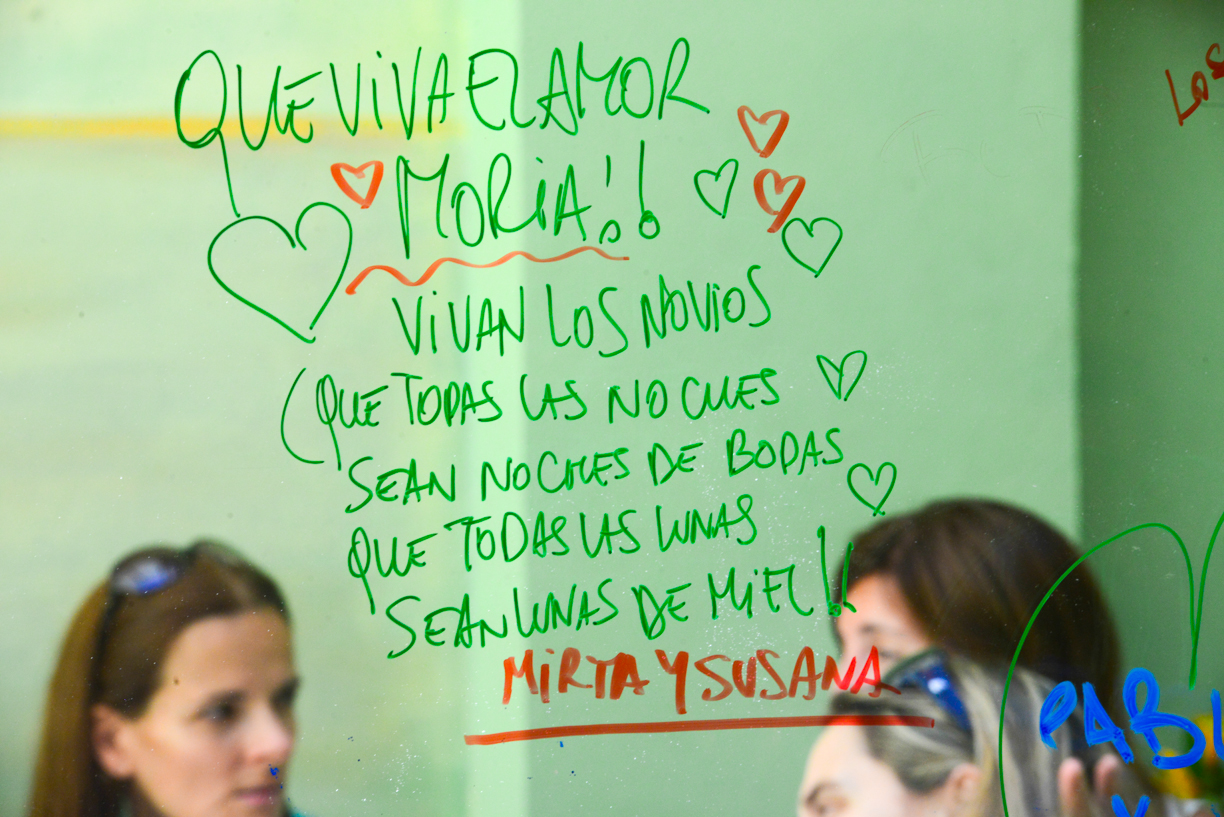 QUE VIVA EL AMOR
MORIA!!
VIVAN LOS NOVIOS
(QUE TODAS LAS NOCHES
SEAN NOCHES DE BODAS
QUE TODAS LAS LUNAS
SEAN LUNAS DE MIEL!!
MIRTA Y SUSANA
LOS
PABL
Y